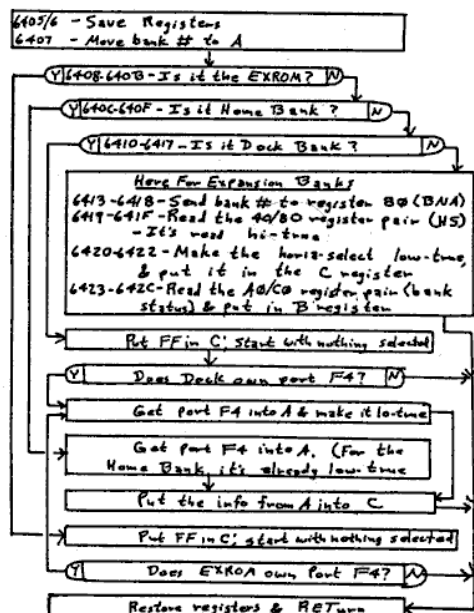 6405/6 - Save Registers
6407 - Move bank # to A
Y 6408-640B - Is it the EXROM? N
Y 640C-640F - Is it Home Bank? N
Y 6410-6417 - Is it Dock Bank? N
Here For Expansion Banks
6413-6418 - Send bank # to register 80 (BNA)
6419-641F - Read the 40/80 register pair (HS)
- It's read hi-true
6420-6422 - Make the horiz-select low-true,
& put it in the C register
6423-642C - Read the A0/C0 register pair (bank
status) & put in B register
Put FF in C; start with nothing selected
Y Does Dock own port F4? N
Get port F4 into A & make it lo-true
Get port F4 into A. (For the
Home Bank, it's already low-true
Put the info from A into C
Put FF in C; start with nothing selected
Y Does EXROM own Port F4? N
Restore registers & RETurn